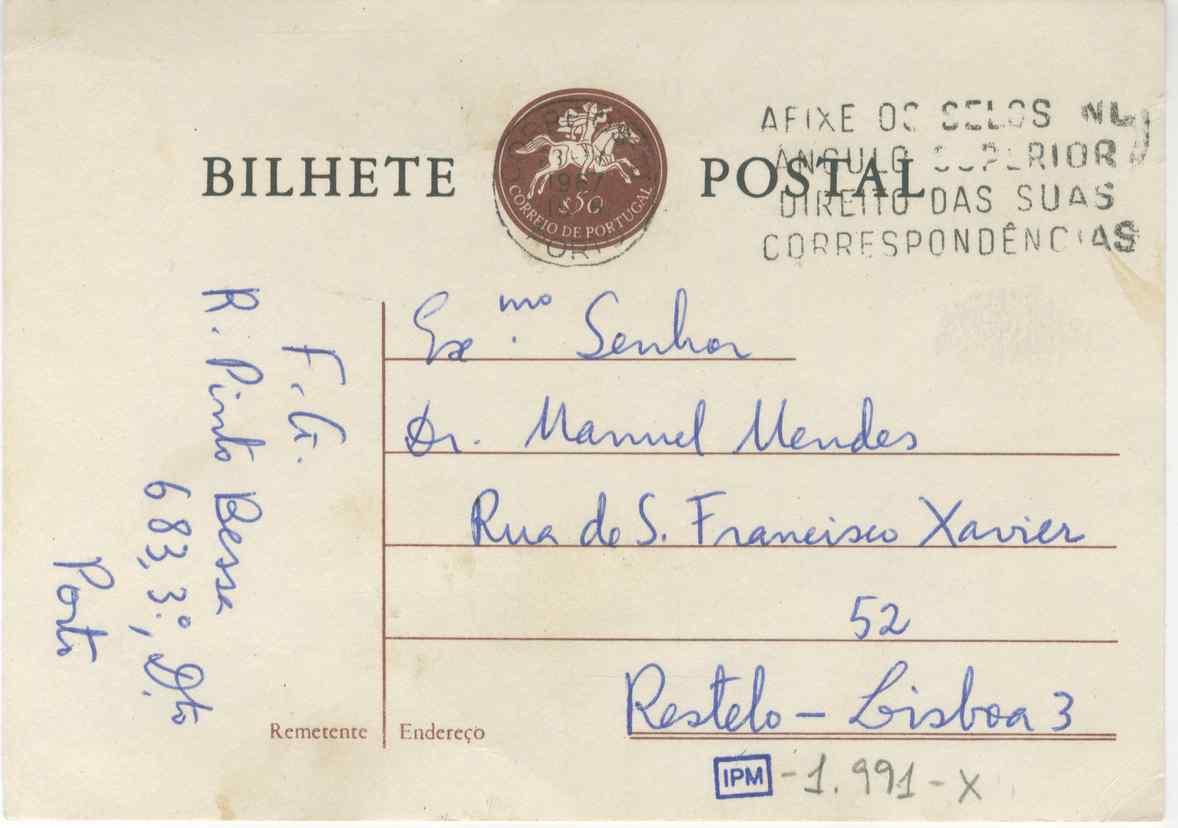 BILHETE POSTAL
1967
$50
CORREIO DE PORTUGAL
AFIXE OS SELOS NO
ANGULO SUPERIOR
DIREITO DAS SUAS
CORRESPONDÊNCIAS
Ex.mo Senhor
Dr. Manuel Mendes
Rua de S. Francisco Xavier
52
Restelo - Lisboa 3
F. G.
R. Pinto Bessa
683, 3.º, D.to
Porto
Remetente
Endereço
IPM - 1.991 - X